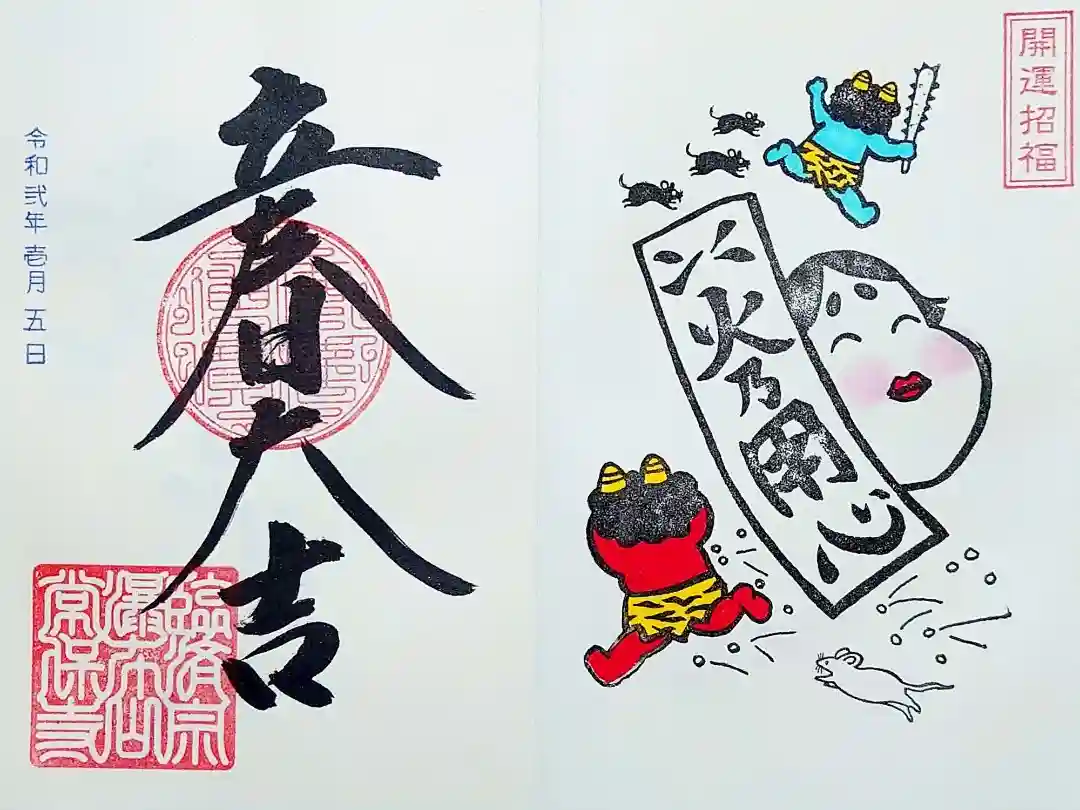 開運招福
火乃用心
立春大吉
臨済宗
瀑布山
常保寺
令和弐年壱月五日